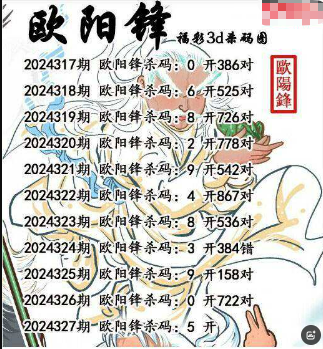 欧阳锋
福彩3d杀码图
歐陽鋒
2024317期 欧阳锋杀码：0 开386对
2024318期 欧阳锋杀码：6 开525对
2024319期 欧阳锋杀码：8 开726对
2024320期 欧阳锋杀码：2 开778对
2024321期 欧阳锋杀码：9 开542对
2024322期 欧阳锋杀码：4 开867对
2024323期 欧阳锋杀码：8 开536对
2024324期 欧阳锋杀码：3 开384错
2024325期 欧阳锋杀码：9 开158对
2024326期 欧阳锋杀码：0 开722对
2024327期 欧阳锋杀码：5 开